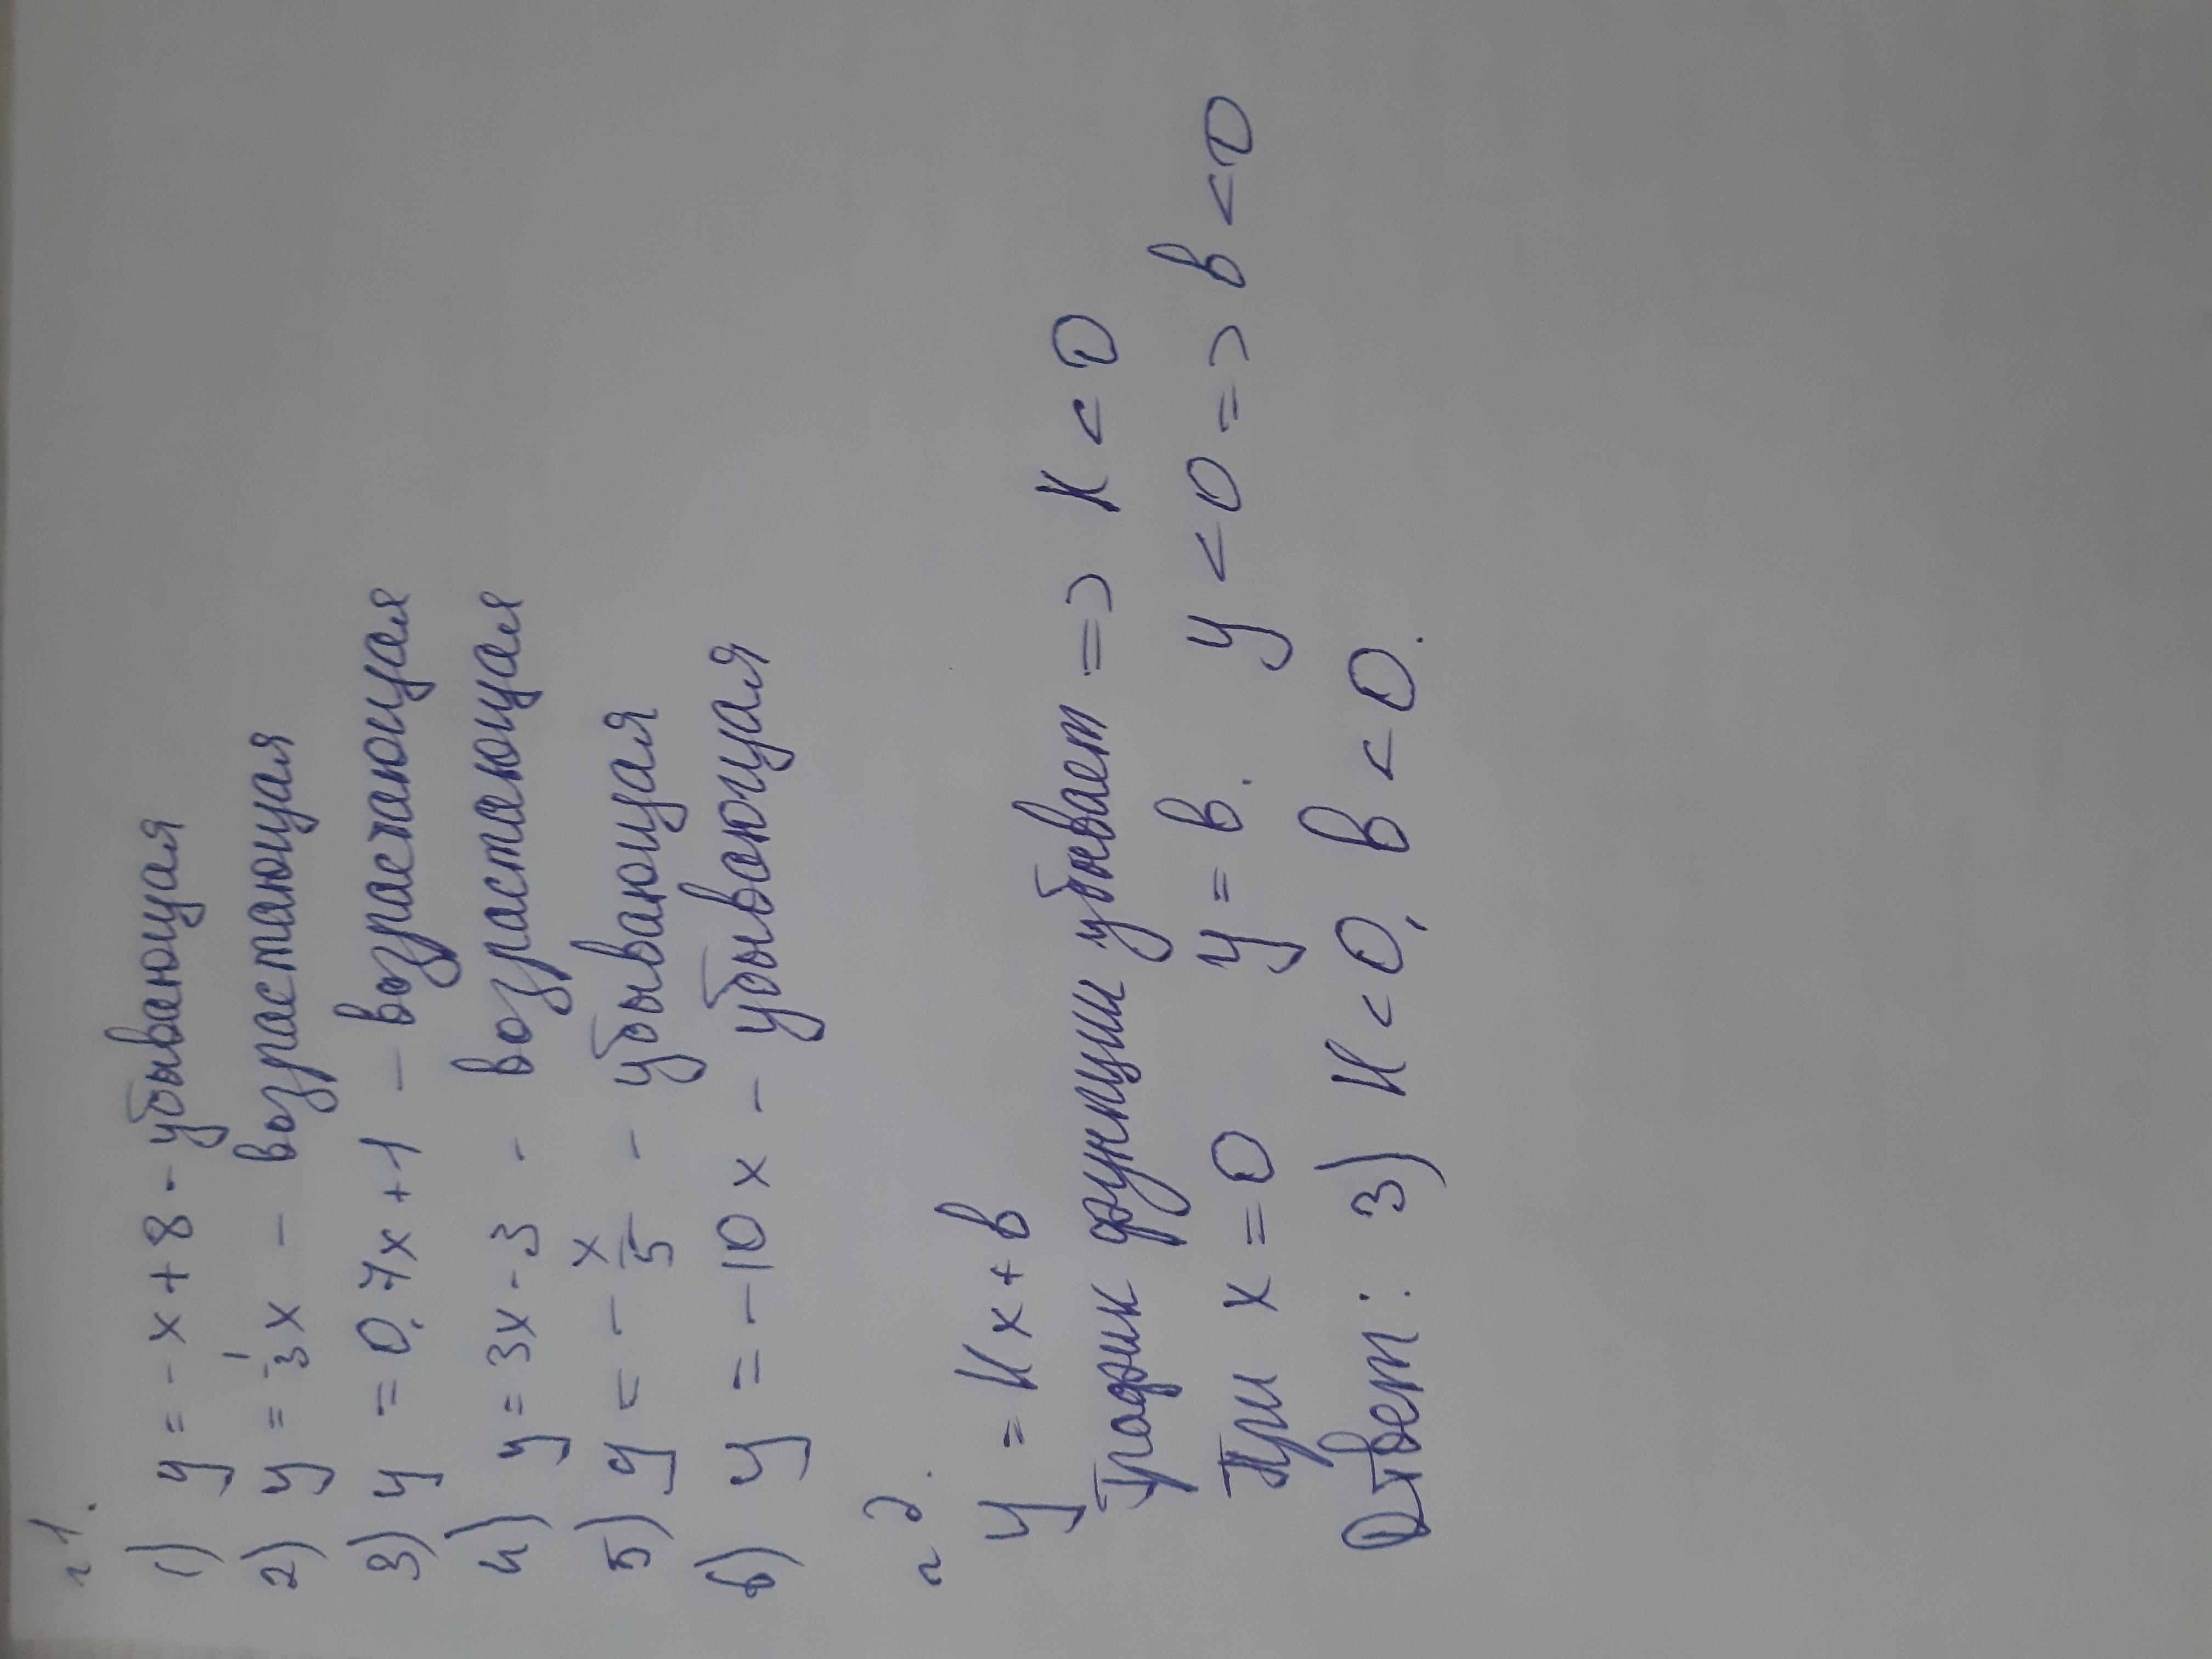 №1.
1) y = -x + 8 - убывающая
2) y = 1/3 x - возрастающая
3) y = 0,7x + 1 - возрастающая
4) y = 3x - 3 - возрастающая
5) y = - x/5 - убывающая
6) y = -10x - убывающая
№2.
y = kx + b
График функции убывает => k < 0
При x = 0 y = b. y < 0 => b < 0
Ответ: 3) k < 0, b < 0.